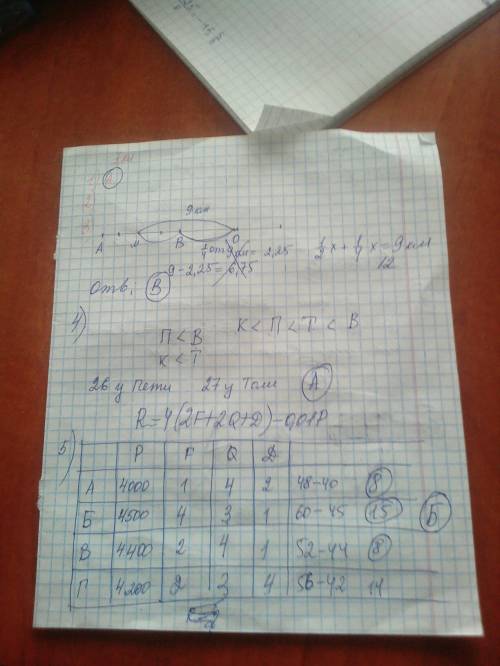 9 км
А М В О
1/4 от 9 км = 2,25 1/2 x + 1/4 x = 9 км
9 - 2,25 = 6,75 12
отв. В
4)
П < В К < П < Т < В
К < Т
26 у Пети 27 у Толи А
R = 4(2F+2Q+D) - 0,01P
5)
P F Q D
А 4000 1 4 2 48-40 8
Б 4500 4 3 1 60-45 15 Б
В 4400 2 4 1 52-44 8
Г 4200 2 3 4 56-42 14